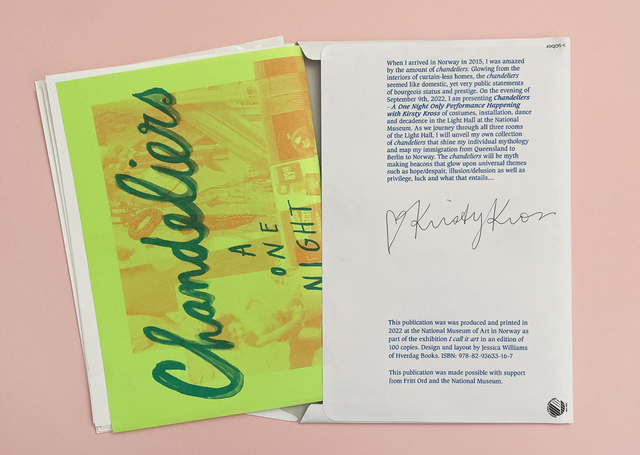 Chandeliers
A
ONE
NIGHT
When I arrived in Norway in 2015, I was amazed
by the amount of chandeliers. Glowing from the
interiors of curtain-less homes, the chandeliers
seemed like domestic, yet very public statements
of bourgeois status and prestige. On the evening of
September 9th, 2022, I am presenting Chandeliers
- A One Night Only Performance Happening
with Kirsty Kross of costumes, installation, dance
and decadence in the Light Hall at the National
Museum. As we journey through all three rooms
of the Light Hall, I will unveil my own collection
of chandeliers that shine my individual mythology
and map my immigration from Queensland to
Berlin to Norway. The chandeliers will be myth
making beacons that glow upon universal themes
such as hope/despair, illusion/delusion as well as
privilege, luck and what that entails....
Kirsty Kross
This publication was was produced and printed in
2022 at the National Museum of Art in Norway as
part of the exhibition I call it art in an edition of
100 copies. Design and layout by Jessica Williams
of Hverdag Books. ISBN: 978-82-93633-16-7
This publication was made possible with support
from Fritt Ord and the National Museum.